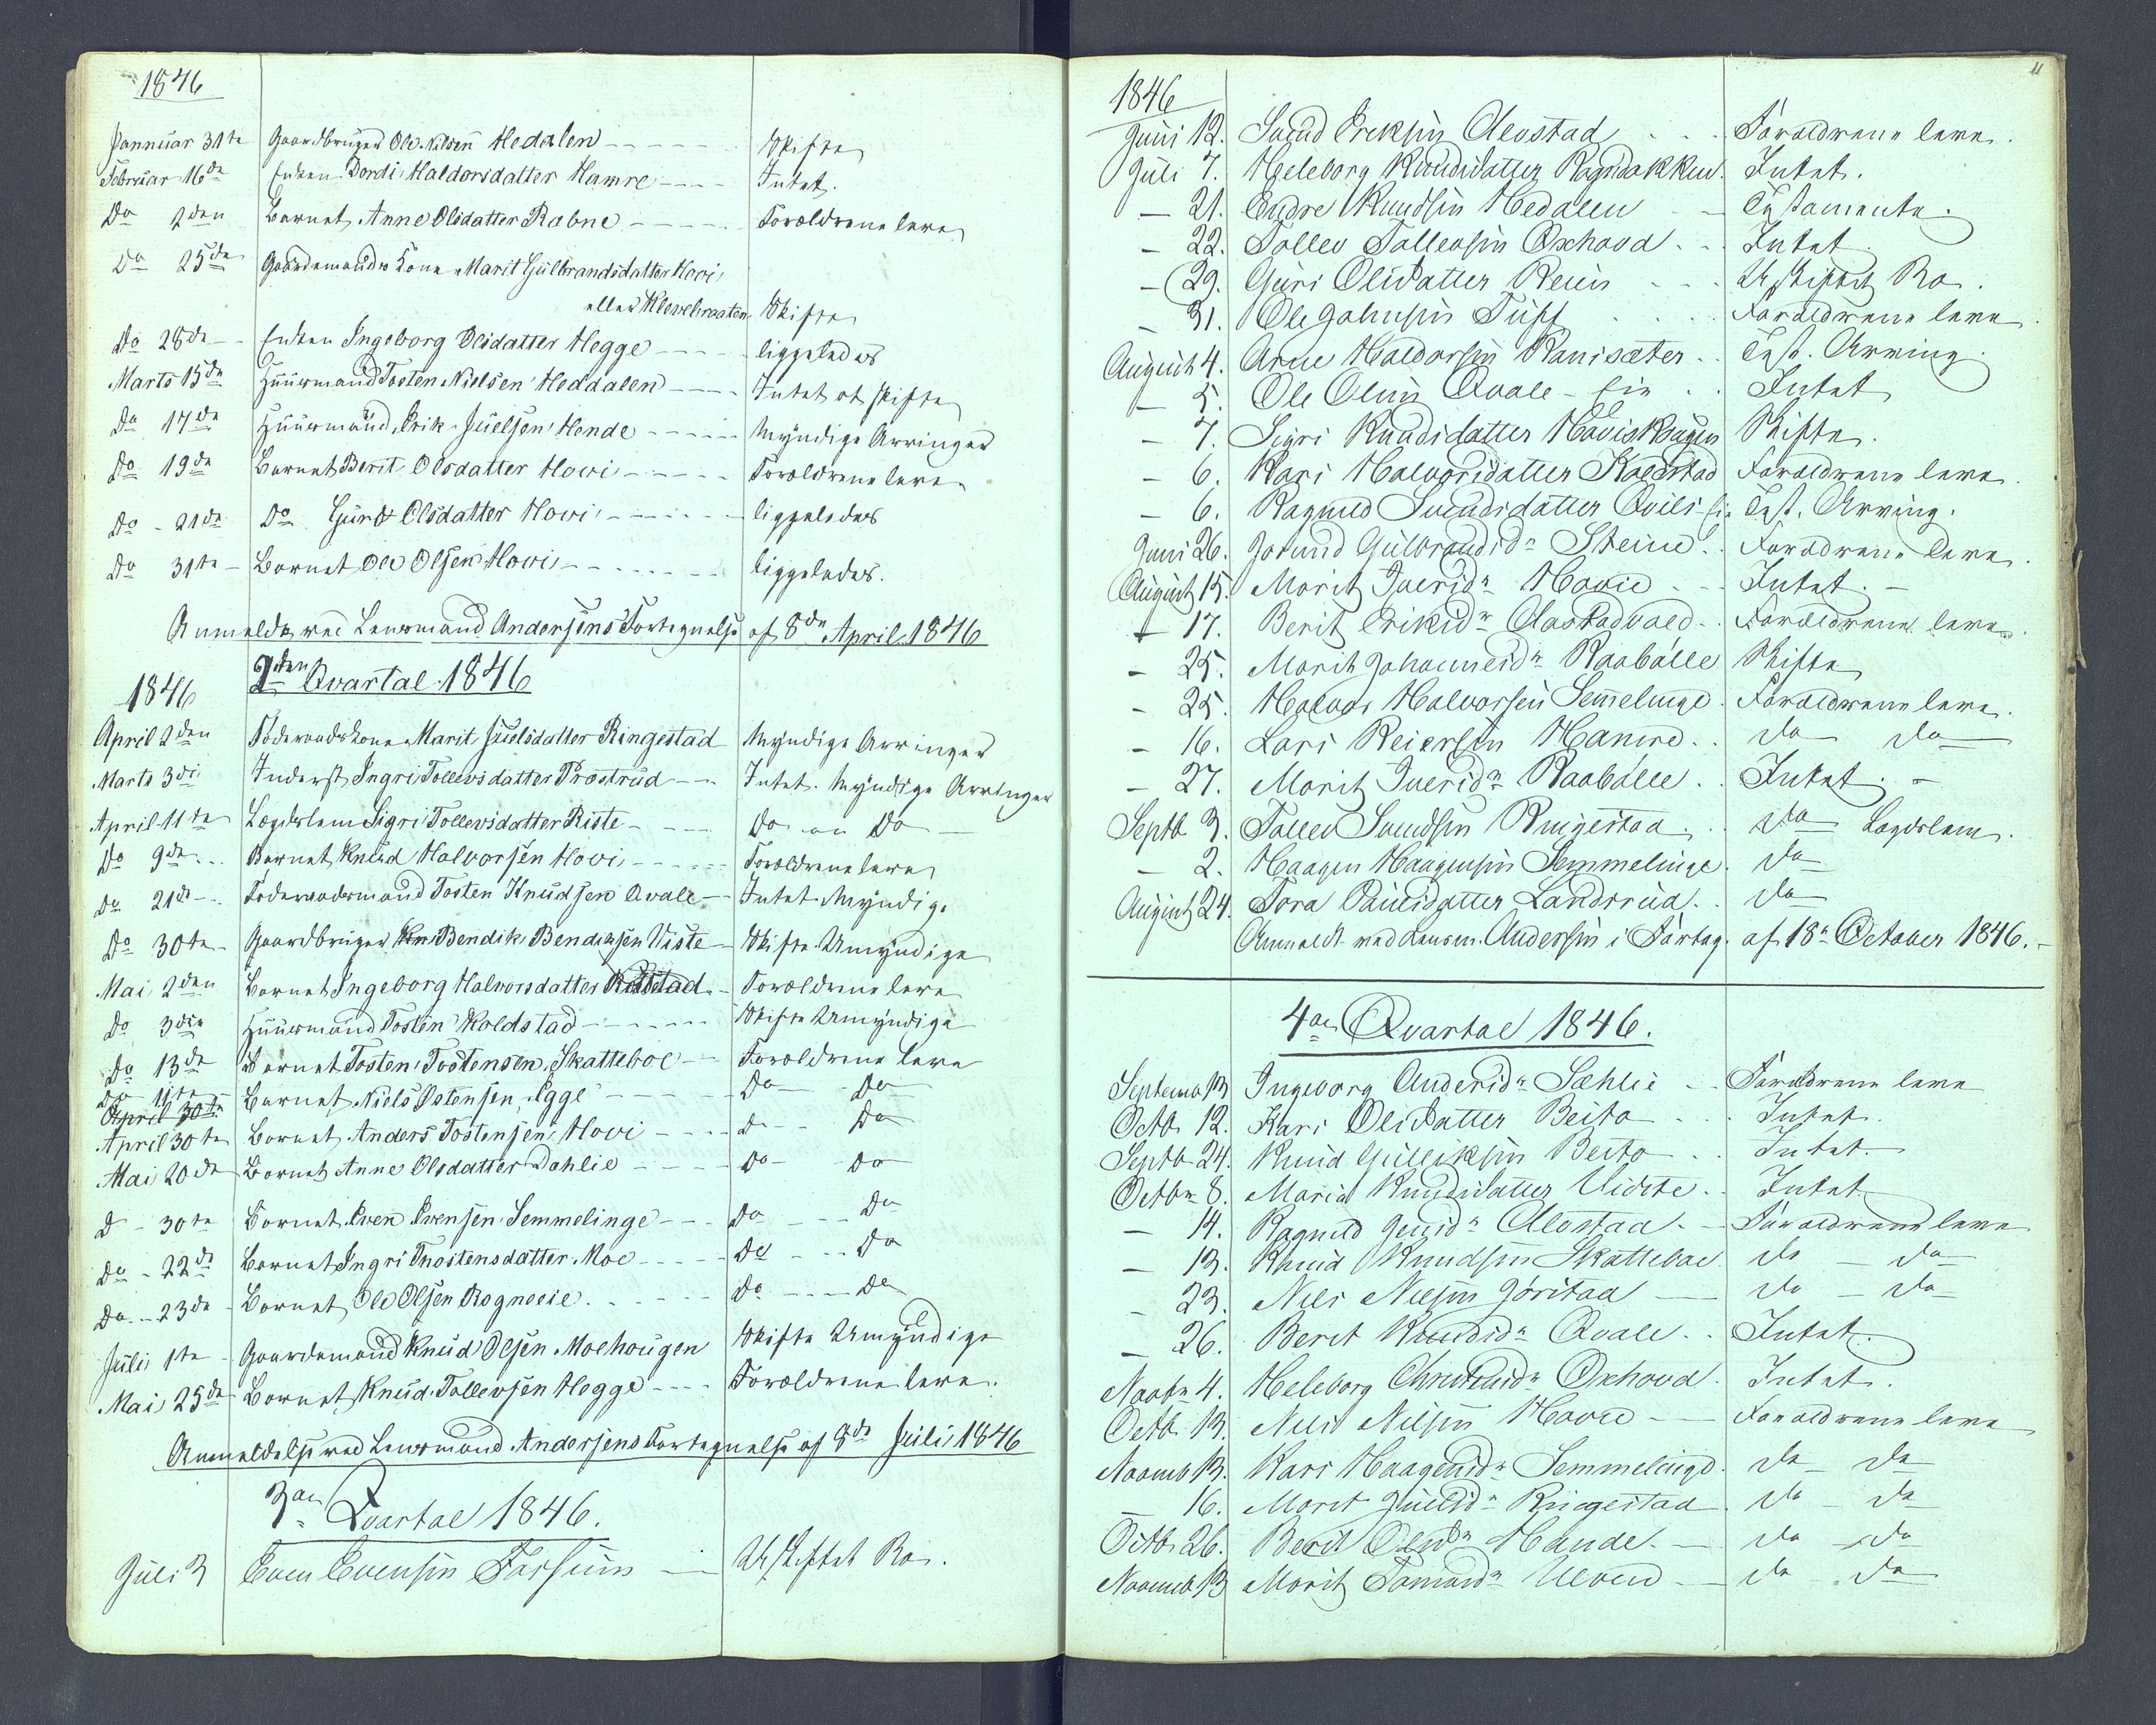 1846
Januar 31te Gaardbruger Ole Nilsen Hedalen Skifte
Februar 16de Enken Dordi Haldorsdatter Hamre Intet.
Do 2den Barnet Anne Olsdatter Robne Forældrene leve
Do 25de Gaardmands Kone Marit Gulbrandsdatter Hovi
eller Klevebraaten Skifte
Do 28de Enken Ingeborg Olsdatter Hegge ligeledes
Marts 15de Huusmand Tosten Nielsen Heddalen Intet at skifte
Do 17de Huusmand Erik Juelsen Hende Myndige Arvinger
Do 19de Barnet Berit Olsdatter Hovi Forældrene leve
Do 21de Do Guri Olsdatter Hovi ligeledes
Do 31te Barnet Ole Olsen Hovi ligeledes.
Anmeldt ved Lensmand Andersens Fortegnelse af 8de April 1846
2den Qvartal 1846
1846
April 2den Føderaadskone Marit Juelsdatter Ringestad Myndige Arvinger
Marts 3die Inderst Ingri Tollevsdatter Prøstrud Intet. Myndige Arvinger
April 11te Lægdslem Sigri Tollevsdatter Riste Do Do
Do 9de Barnet Knud Halvorsen Hovi Forældrene leve
Do 21de Føderaadsmand Tosten Knudsen Qvale Intet. Myndige
Do 30te Gaardbruger Bendik Bendiksen Viste Skifte Umyndige
Mai 2den Barnet Ingeborg Halvorsdatter Forældrene leve
Do 3die Huusmand Tosten Koldstad Skifte Umyndige
Do 13de Barnet Tosten Tostensen Skatteboe Forældrene leve
Do 11te Barnet Niels Østensen Egge Do Do
April 30te
April 30te Barnet Anders Tostensen Hovi Do Do
Mai 20de Barnet Anne Olsdatter Dahlie Do Do
D 30te Barnet Even Evensen Semmelinge Do Do
Do 22de Barnet Ingri Thostensdatter Moe Do Do
Do 23de Barnet Ole Olsen Rogneeie Do Do
Juli 1te Gaardmand Knud Olsen Moehougen Skifte Umyndige
Mai 25de Barnet Knud Tollevsen Hegge Forældrene leve.
Anmeldelse ved Lensmand Andersens Fortegnelse af 8de Juli 1846
3die Qvartal 1846.
Juli 3 Even Evensen Fossum Uskiftet Bo.
11
1846
Juni 12. Svend Eriksen Alvstad Forældrene leve.
Juli 7. Heleborg Knudsdatter Rognsbakken. Intet.
21. Endre Knudsen Hedalen Testamente.
22. Tollev Tollevsen Oxhovd Intet.
29. Guri Olsdatter Reien Uskiftet Bo.
31. Ole Johnsen Tuff Forældrene leve.
August 4. Arne Haldorsen Ranisæter Test. Arving.
5. Ole Olsen Qvale Eie Intet
7. Sigri Knudsdatter Hovishagen Skifte.
6. Kari Halvorsdatter Koldstad Forældrene leve.
6. Ragnild Svendsdatter Qvils Eie Test. Arving.
Juni 26. Jorand Gulbrandsdr Steine. Forældrene leve.
August 15. Marit Iversdr Hovie Intet.
17. Berit Eriksdr Alvstadvald Forældrene leve.
25. Marit Johannesdr Raabølle Skifte
25. Halvor Halvorsen Semelinge. Forældrene leve.
16. Lars Reiersen Hamre. do do
27. Marit Iversdr Raabølle. Intet.
Septb 3. Tollev Svendsen Ringestad. do Lægdslem.
2. Haagen Haagensen Semmelinge. do
August 24. Tora Paulsdatter Landsrud. do
Anmeldt ved Lensm. Andersen i Forteg. af 18de October 1846.
4de Qvartal 1846.
Septemb 13 Ingeborg Andersdr Sæhlie Forældrene leve
Octb 12. Kari Olsdatter Beito Intet.
Septb 24. Knud Gulliksen Beito Intet.
Octbr 8. Maria Knudsdatter Vidste. Intet
14. Ragnild Jensdr Alvstad. Forældrene leve
13. Knud Knudsen Skattebøe. do do
23. Nils Nilsen Jørstad do do
26. Berit Knudsdr Qvale. Intet.
Novbr 4. Heleborg Christensdr Oxhovd. Intet.
Octb 13. Nils Nilsen Hovie Forældrene leve
Novemb 13. Kari Haagensdr Semmelinge. do do
16. Marit Juulsdr Ringestad. do do
Octb 26. Berit Olsdr Hande. do do
Novemb 13 Marit Tomasdr Ulven do do